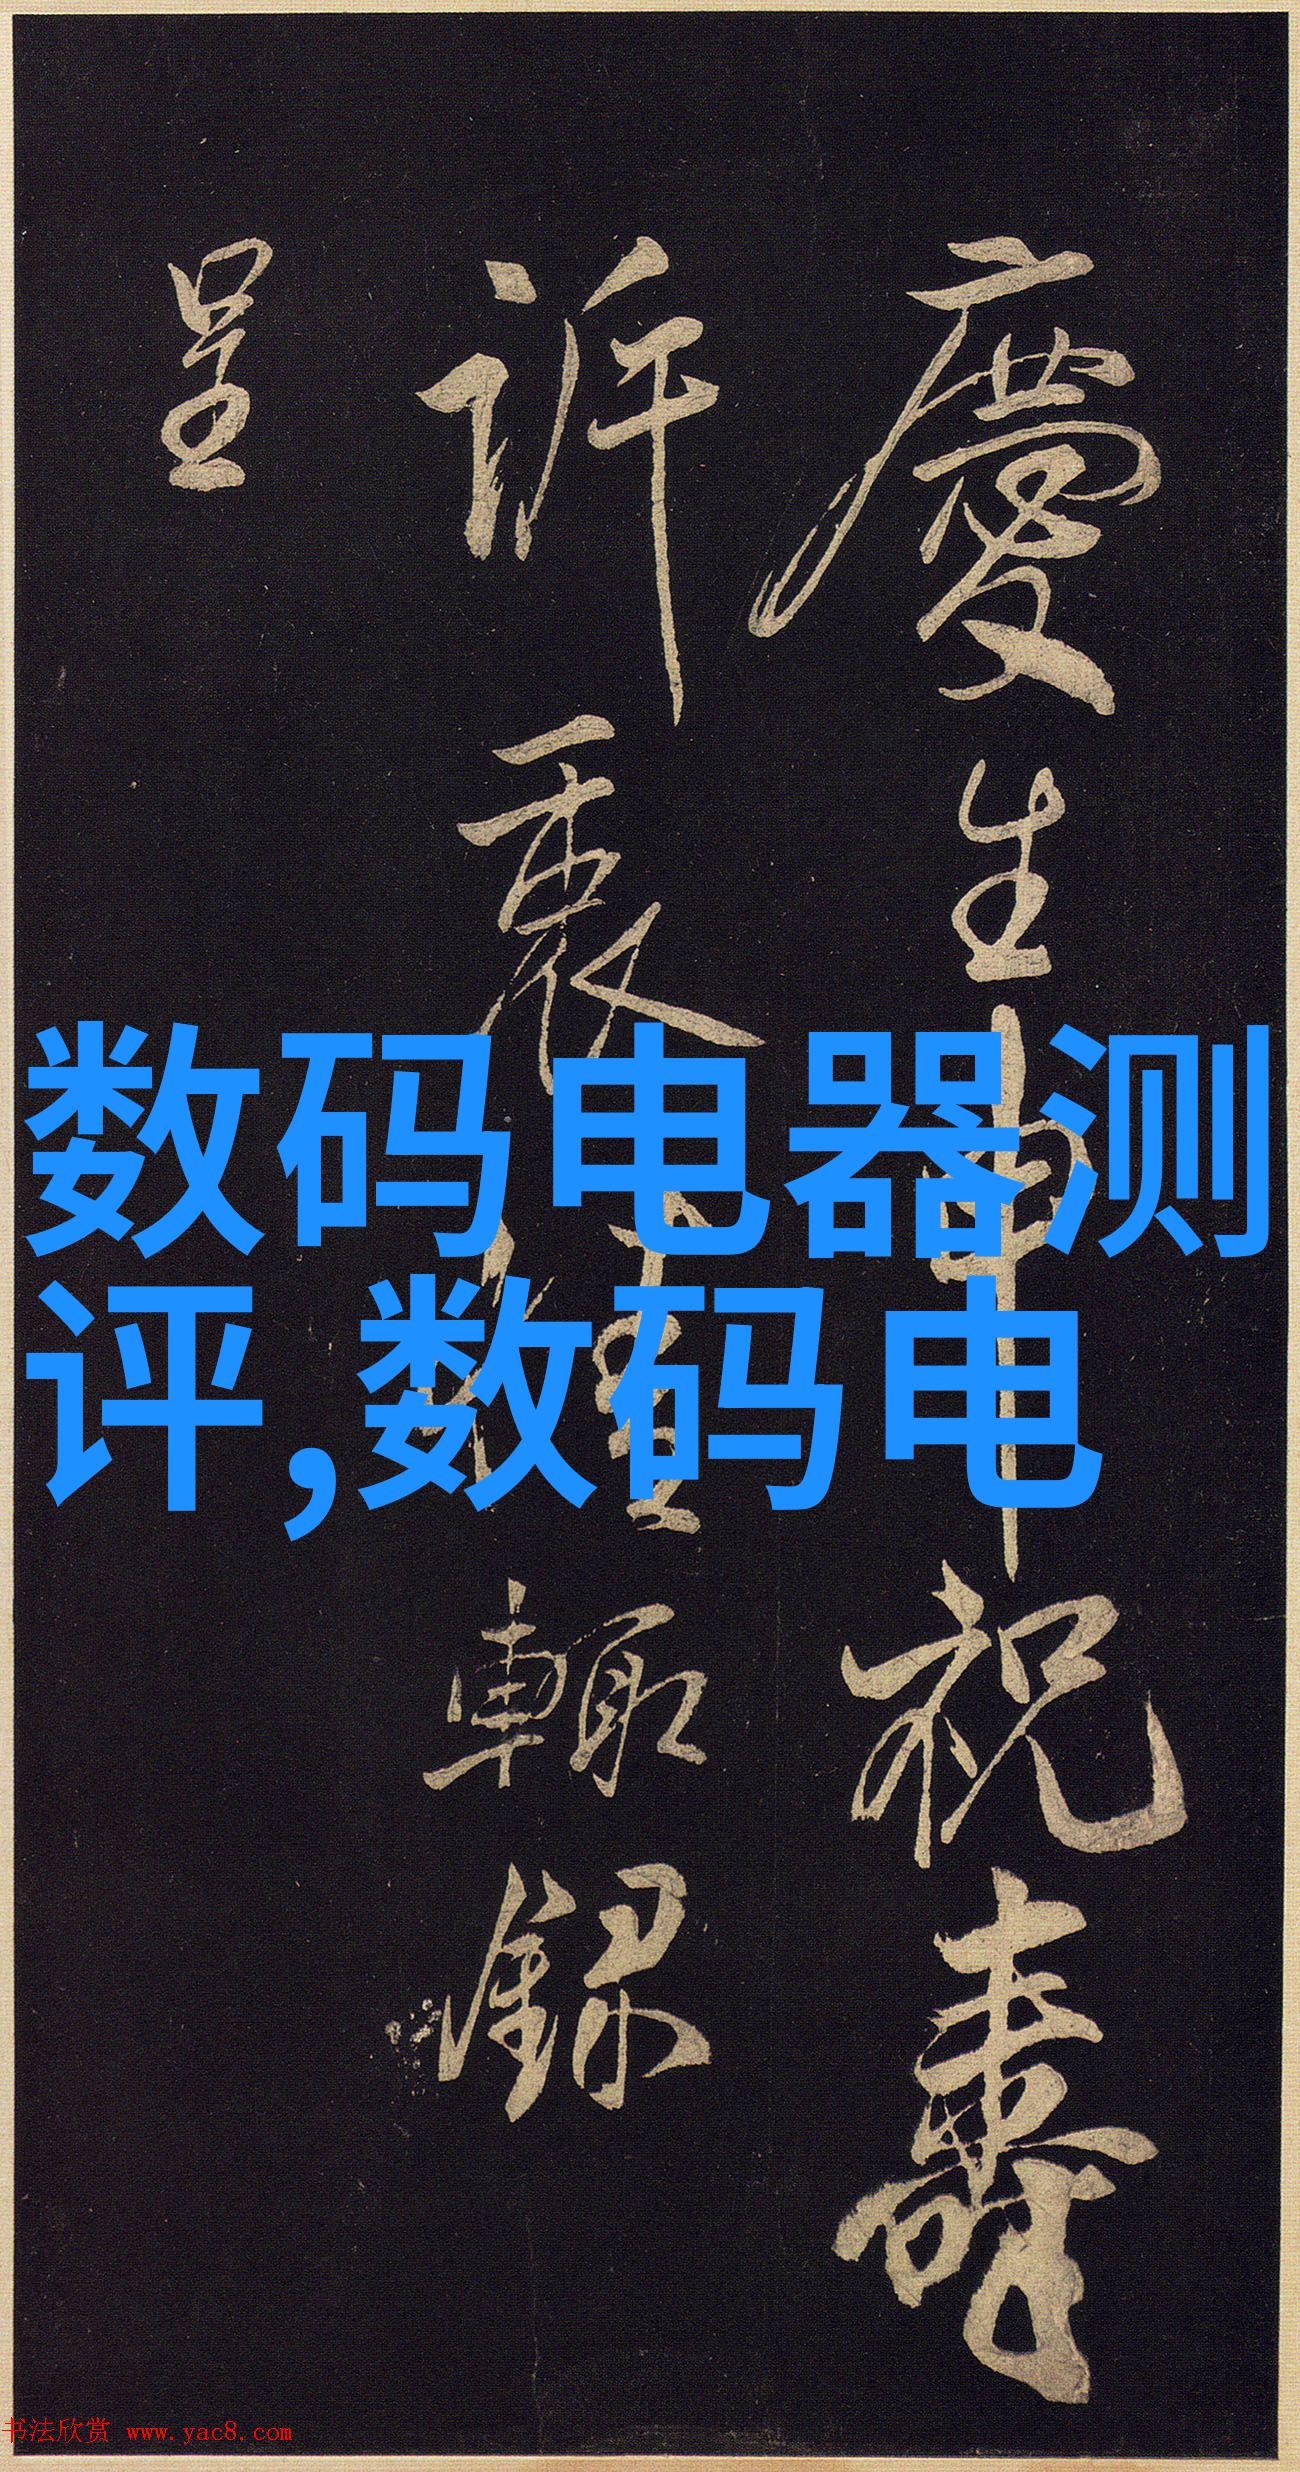 慶生申祝壽
訴衷
輙録
呈
数码电器测
评,数码电
书法欣赏 www.yac8.com